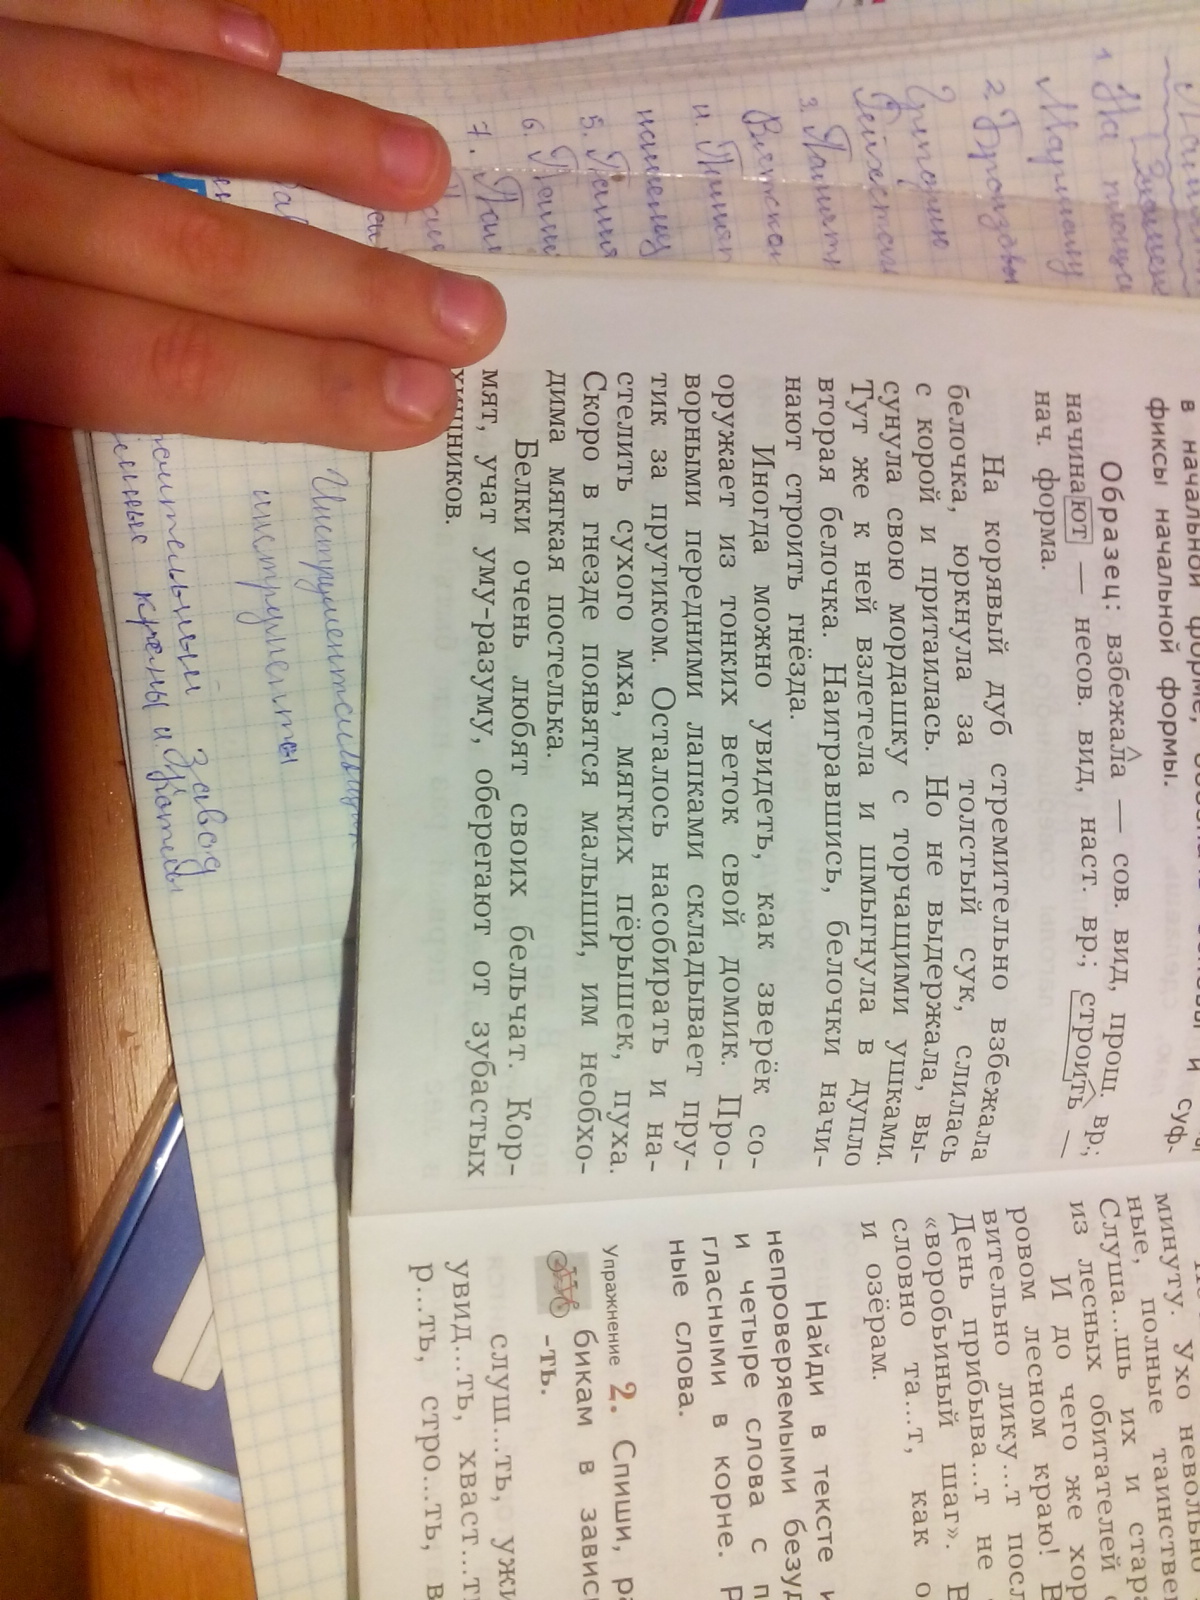 в начальной форме,
и суф-
фиксы начальной формы.
Образец: взбежала — сов. вид, прош. вр.;
начинают — несов. вид, наст. вр.; строить —
нач. форма.
На корявый дуб стремительно взбежала
белочка, юркнула за толстый сук, слилась
с корой и притаилась. Но не выдержала, вы-
сунула свою мордашку с торчащими ушками.
Тут же к ней взлетела и шмыгнула в дупло
вторая белочка. Наигравшись, белочки начи-
нают строить гнёзда.
Иногда можно увидеть, как зверёк со-
оружает из тонких веток свой домик. Про-
ворными передними лапками складывает пру-
тик за прутиком. Осталось насобирать и на-
стелить сухого мха, мягких пёрышек, пуха.
Скоро в гнезде появятся малыши, им необхо-
дима мягкая постелька.
Белки очень любят своих бельчат. Кор-
мят, учат уму-разуму, оберегают от зубастых
хищников.
минуту. Ухо невольно
ные, полные таинстве
Слуша...шь их и стара
из лесных обитателей
И до чего же хор
ровом лесном краю! В
вительно лику...т посл
День прибыва...т не
«воробьиный шаг». В
словно та...т, как о
и озёрам.
Найди в тексте и
непроверяемыми безуд
и четыре слова с п
гласными в корне. Р
ные слова.
Упражнение 2. Спиши, ра
бикам в завис
-ть.
слуш...ть, ужи
увид...ть, хваст...т
р...ть, стро...ть, в
1. На площа
Маршалу
2. Бронзовы
Григорию
3. Памятн
Вятско
4.
5.
6.
7.
инструменты
завод
краны и